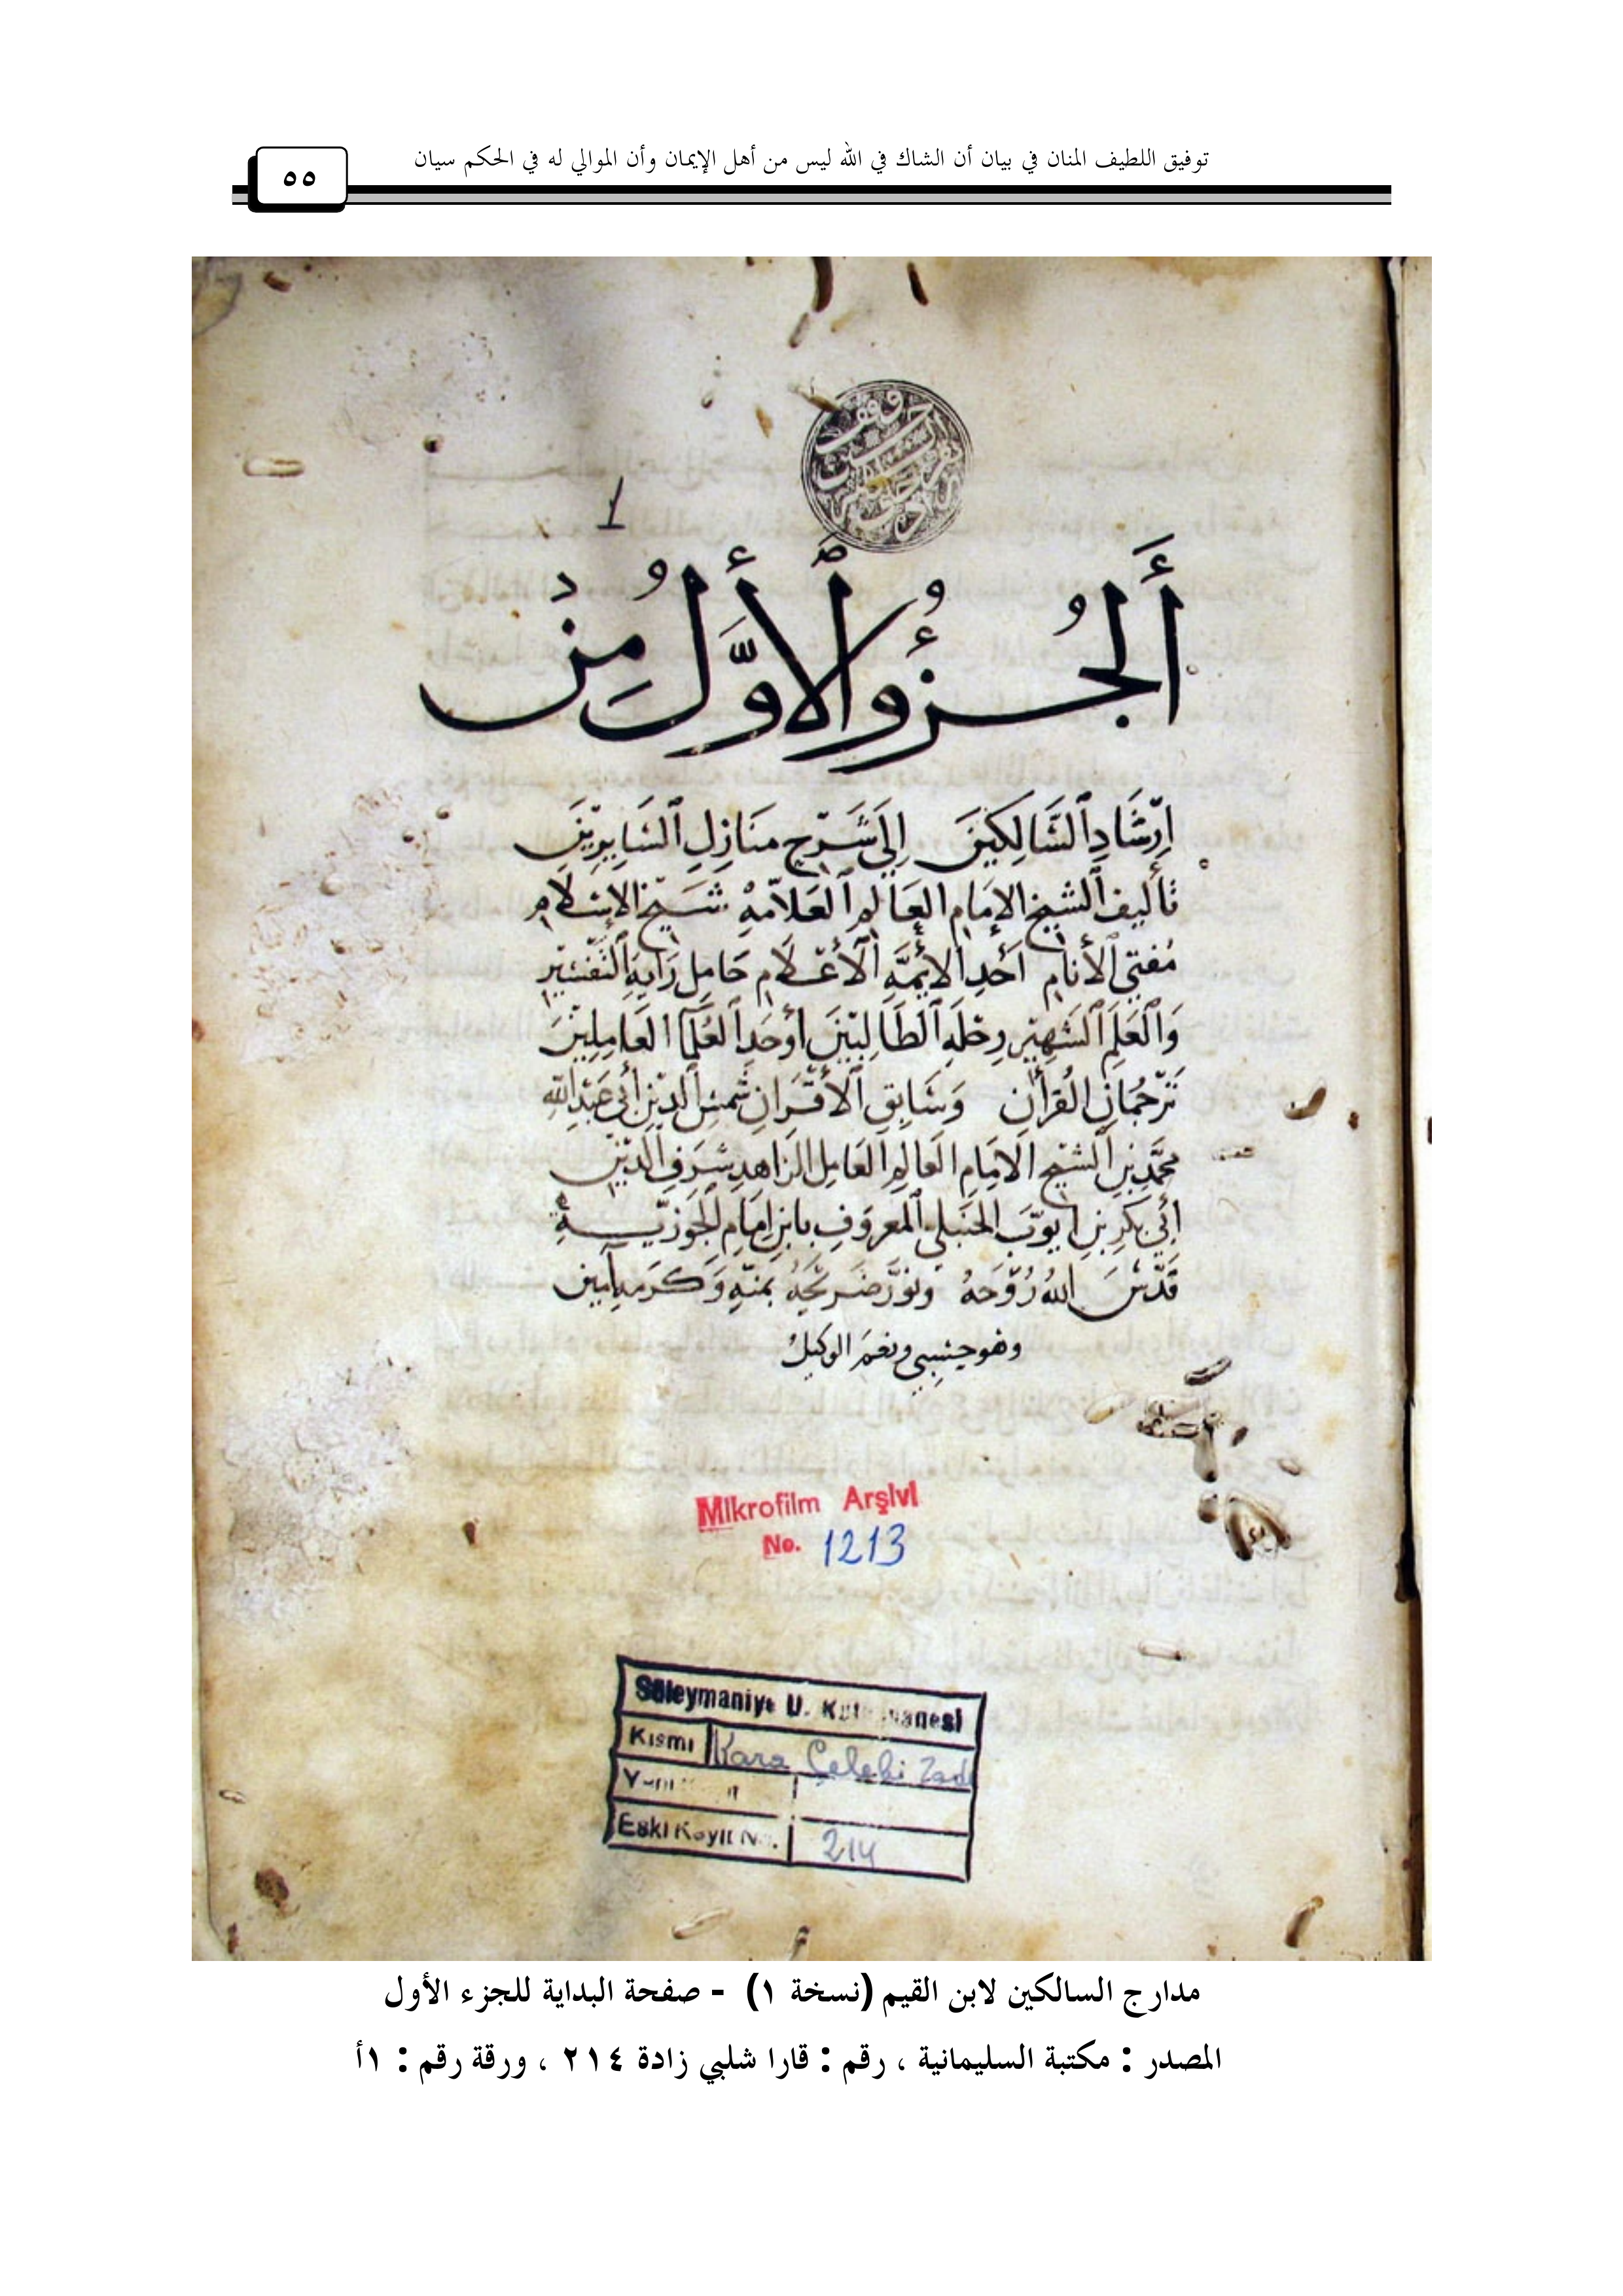 توفيق اللطيف المنان في بيان أن الشاك في الله ليس من أهل الإيمان وأن الموالي له في الحكم سيان
٥٥
1
أَلجُزؤُ ٱلأَوَّلُ مِنْ
إِرْشَادِ ٱلسَّالِكِينَ إِلَى شَرْحِ مَنَازِلِ ٱلسَّايِرِيْنَ
تَأليف ٱلشيخ الإمَام العَالِم ٱلعَلاّمَهْ شَيْخ الإسْلَام
مُفتي ٱلأَنام أَحَدِ ٱلأئِمَّهِ ٱلأَعْلَام حَامِل رَايَهِ ٱلتَّفْسِيْرِ
وَٱلْعَلَمِ ٱلشَهِيْرِ رحْلَهِ ٱلطَالِبِيْنَ أَوحَدِ ٱلعُلَمَآ العَامِلِيْنَ
تَرْجُمَانِ القُرآن وَسَابِقِ ٱلأَقْرَانِ شَمْسِ ٱلدِيْنِ أَبي عَبْدِ اللهِ
محَمَّدِ بْنِ ٱلشيخ الامَام العَالِم العَامِل الزَاهدِ شَرَفِ الدِيْنِ
أَبي بَكرِ بْنِ أيوُّبَ الحَنبَلي ٱلمعروَفِ بابنِ إمَامِ الجَوزيّةِ
قَدَّسَ اللهُ رُوْحَهُ وَنوَّرَ ضَريْحَهُ بمنّهِ وَكَرَمهِ آمين
وهو حَسْبِي ونعْمَ الوكيلُ
Mikrofilm Arşivi
No. 1213
Süleymaniye U. Kütüphanesi
Kısmı Kara Çelebi Zade
Eski Kayıt No. 214
مدارج السالكين لابن القيم (نسخة ١) - صفحة البداية للجزء الأول
المصدر : مكتبة السليمانية ، رقم : قارا شلبي زادة ٢١٤ ، ورقة رقم : ١أ